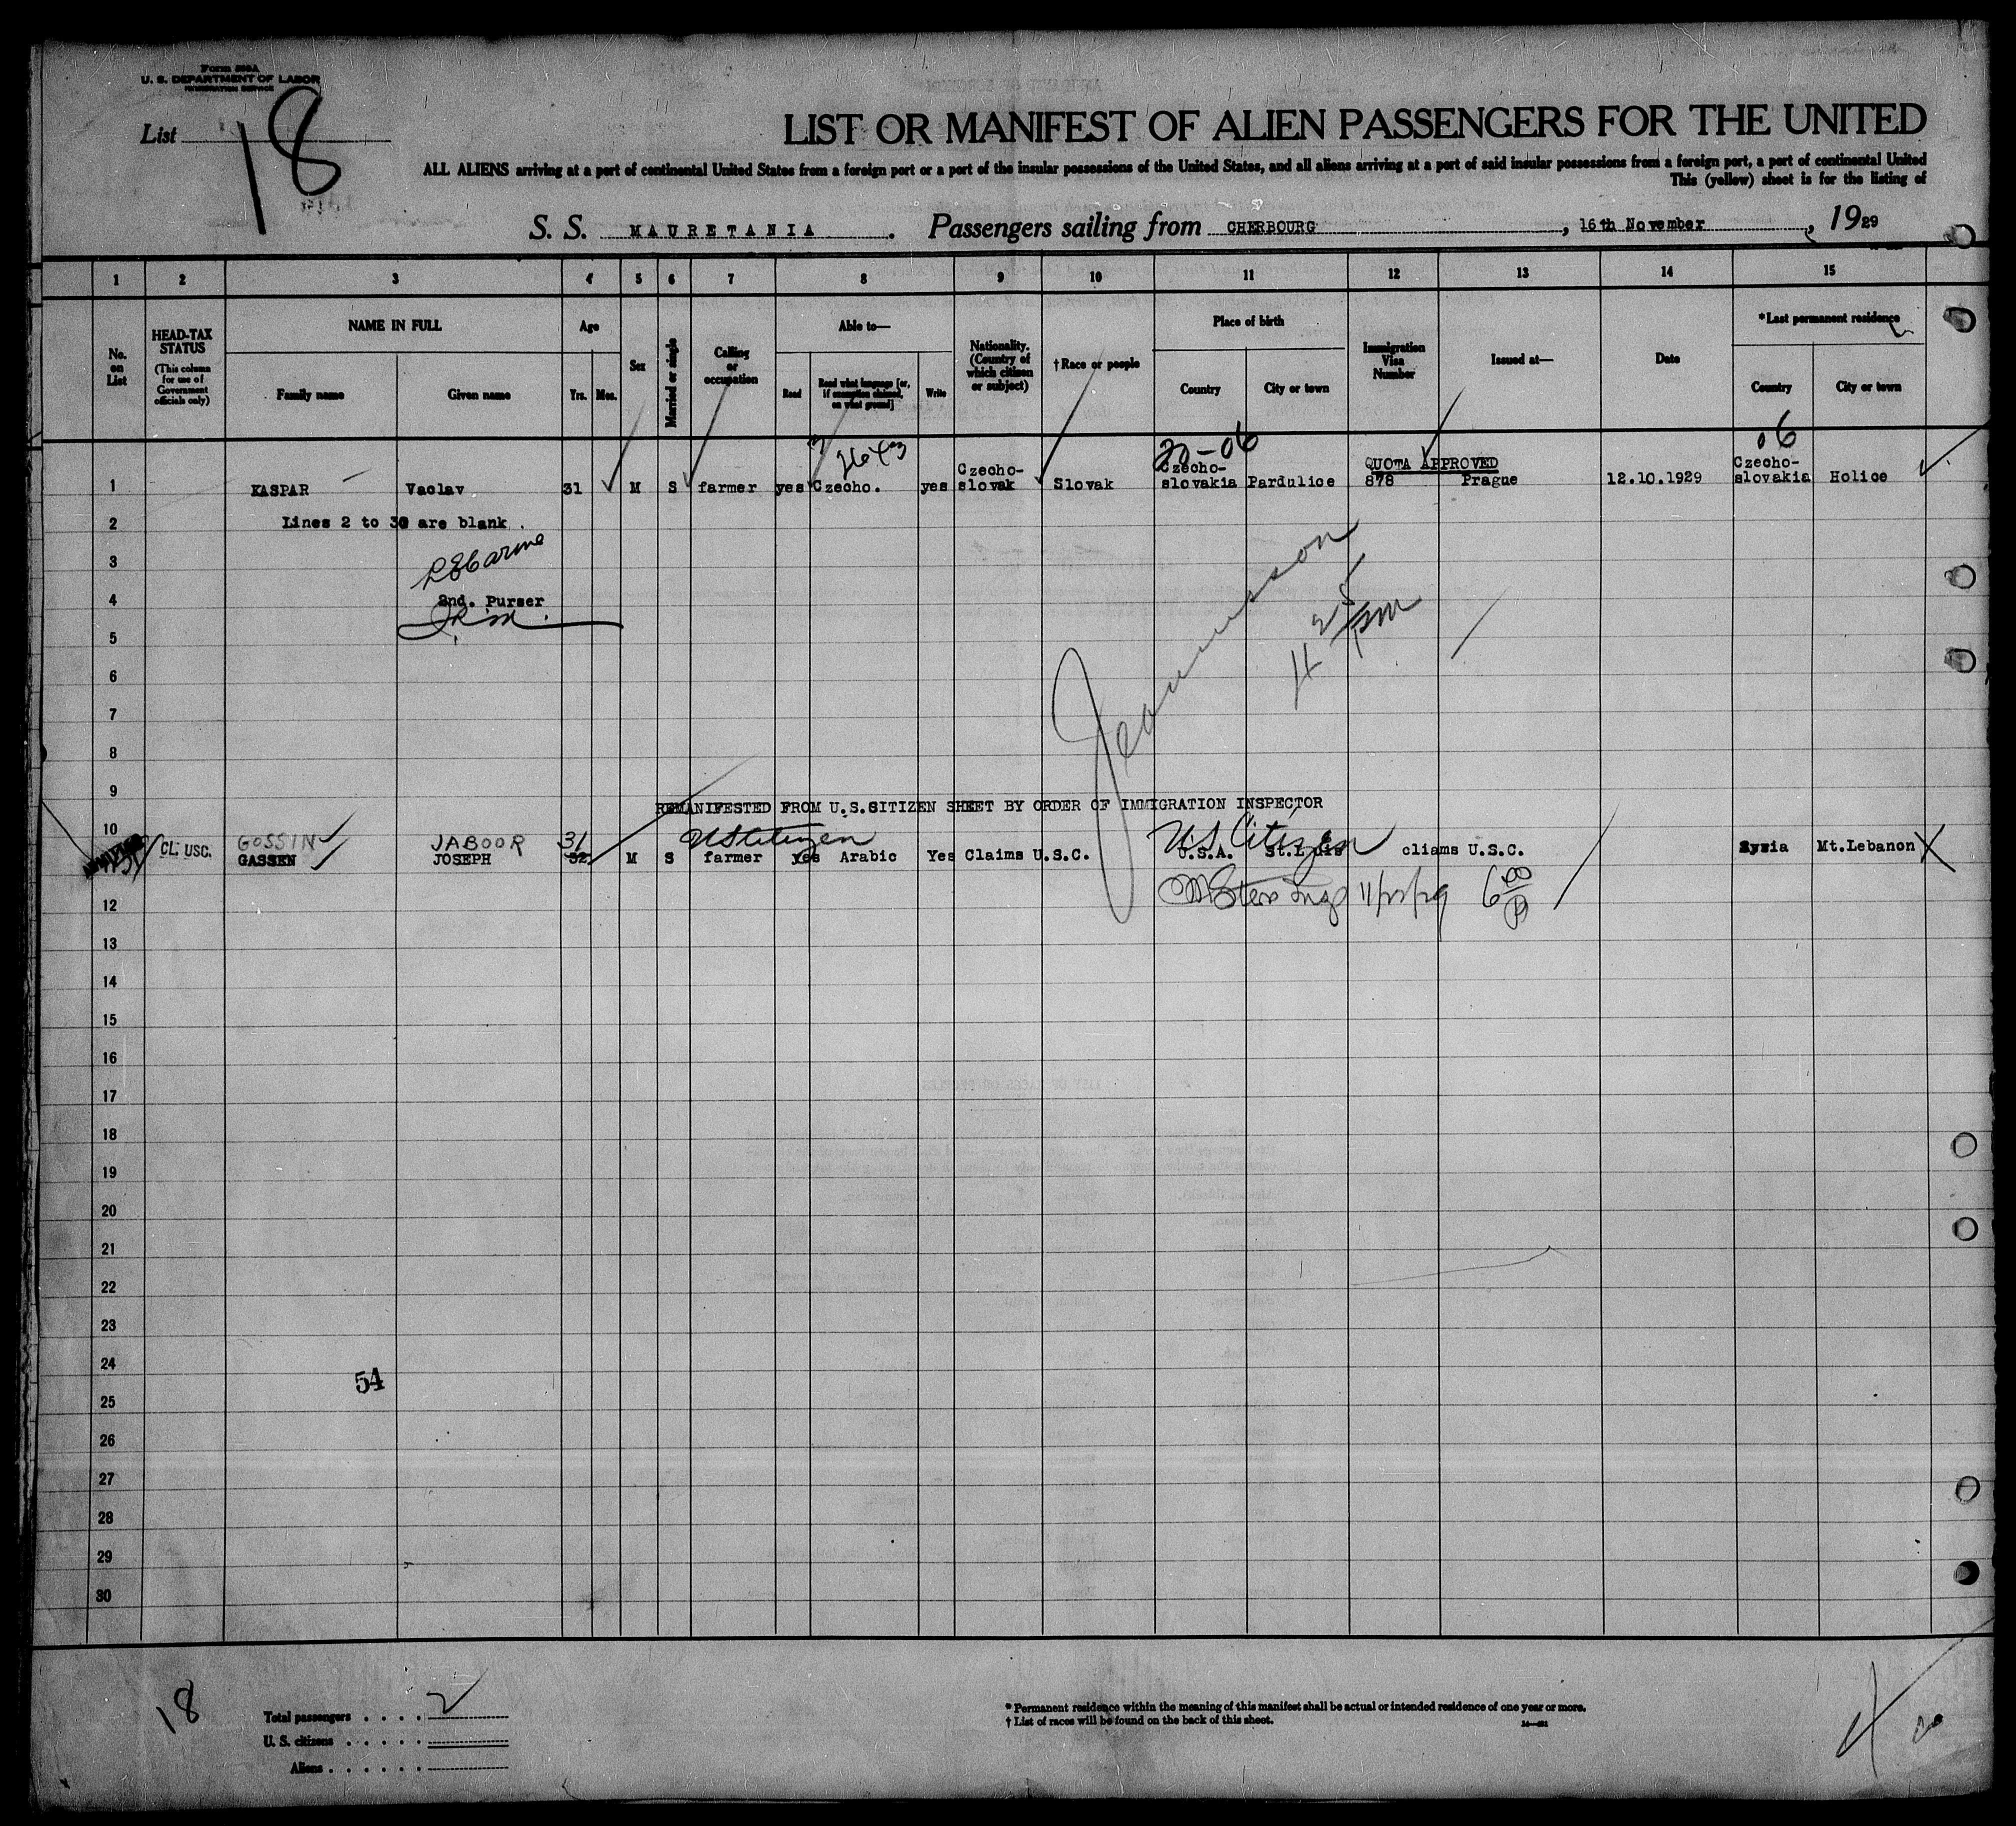 Form 500A
U. S. DEPARTMENT OF LABOR
IMMIGRATION SERVICE
List 18
LIST OR MANIFEST OF ALIEN PASSENGERS FOR THE UNITED
ALL ALIENS arriving at a port of continental United States from a foreign port or a port of the insular possessions of the United States, and all aliens arriving at a port of said insular possessions from a foreign port, a port of continental United
This (yellow) sheet is for the listing of
S. S. MAURETANIA . Passengers sailing from CHERBOURG , 16th November , 1929
1 2 3 4 5 6 7 8 9 10 11 12 13 14 15
No. on List
HEAD-TAX STATUS (This column for use of Government officials only)
NAME IN FULL Family name Given name
Age Yrs. Mos.
Sex
Married or single
Calling or occupation
Able to— Read Read what language [or, if exemption claimed, on what ground] Write
Nationality. (Country of which citizen or subject)
†Race or people
Place of birth Country City or town
Immigration Visa Number
Issued at—
Date
*Last permanent residence Country City or town
20-06 06
QUOTA APPROVED
1 KASPAR Vaclav 31 M S farmer yes Czecho. yes Czecho-slovak Slovak Czecho-slovakia Pardulice 878 Prague 12.10.1929 Czecho-slovakia Holice
2 Lines 2 to 30 are blank.
3
4 2nd. Purser
5
6
7
8
9
REMANIFESTED FROM U.S.SITIZEN SHEET BY ORDER OF IMMIGRATION INSPECTOR
10 GOSSIN JABOOR 31 US Citizen U.S. Citizen
CL. USC. GASSEN JOSEPH 32 M S farmer Yes Arabic Yes Claims U.S.C. U.S.A. St.Louis cliams U.S.C. Syria Mt.Lebanon
12
13
14
15
16
17
18
19
20
21
22
23
24
54
25
26
27
28
29
30
18
Total passengers . . . . 2
U. S. citizens . . . . .
Aliens . . . . . .
* Permanent residence within the meaning of this manifest shall be actual or intended residence of one year or more.
† List of races will be found on the back of this sheet.